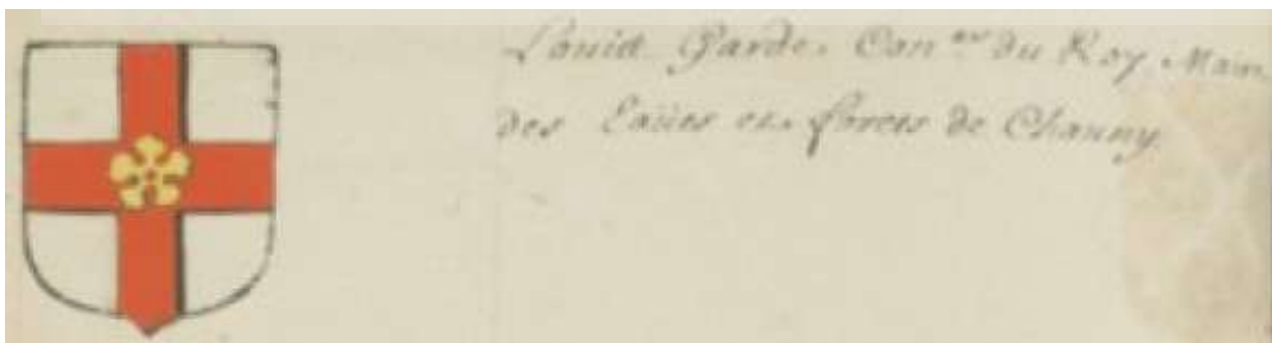 Louis Garde. Con.er du Roy Main
des Eaües et forets de Chauny